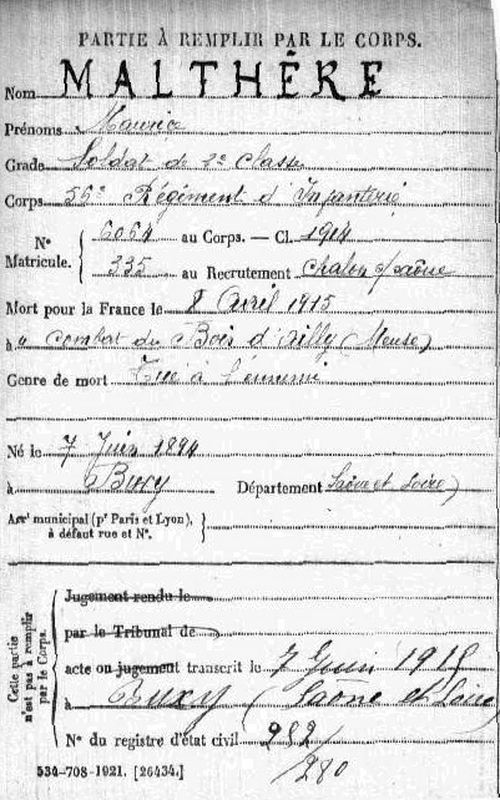 PARTIE À REMPLIR PAR LE CORPS.
Nom MALTHÈRE
Prénoms Maurice
Grade Soldat de 2e Classe
Corps 56e Régiment d'Infanterie
No Matricule. { 6064 au Corps. — Cl. 1914
335 au Recrutement Chalon s/Saône
Mort pour la France le 8 Avril 1915
à u combat du Bois d'Ailly (Meuse)
Genre de mort Tué à l'ennemi
Né le 7 Juin 1894
à Buxy Département Saône et Loire)
Arrt municipal (pr Paris et Lyon), à défaut rue et No. }
Cette partie n'est pas à remplir par le Corps.
Jugement rendu le
par le Tribunal de
acte ou jugement transcrit le 7 Juin 1915
à Buxy (Saône et Loire)
No du registre d'état civil 282/280
534-708-1921. [26434.]